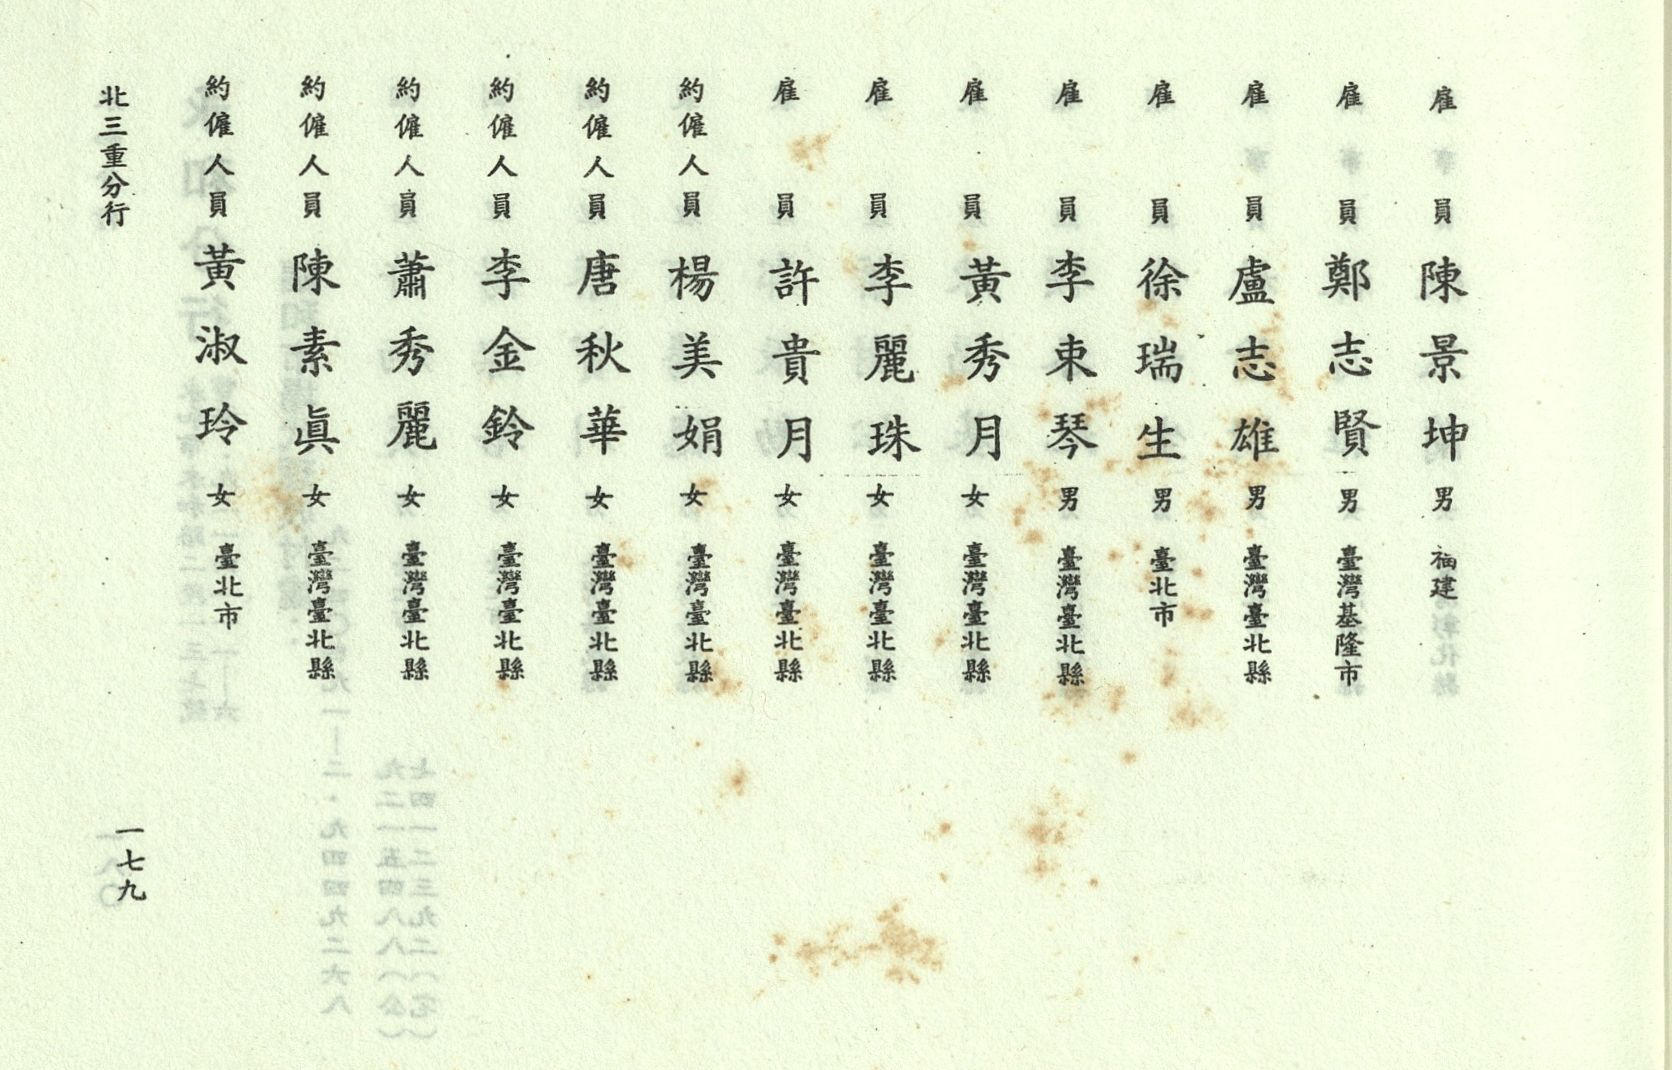 雇員陳景坤男福建
雇員鄭志賢男臺灣基隆市
雇員盧志雄男臺灣臺北縣
雇員徐瑞生男臺北市
雇員李東琴男臺灣臺北縣
雇員黃秀月女臺灣臺北縣
雇員李麗珠女臺灣臺北縣
雇員許貴月女臺灣臺北縣
約僱人員楊美娟女臺灣臺北縣
約僱人員唐秋華女臺灣臺北縣
約僱人員李金鈴女臺灣臺北縣
約僱人員蕭秀麗女臺灣臺北縣
約僱人員陳素眞女臺灣臺北縣
約僱人員黃淑玲女臺北市
北三重分行
一七九